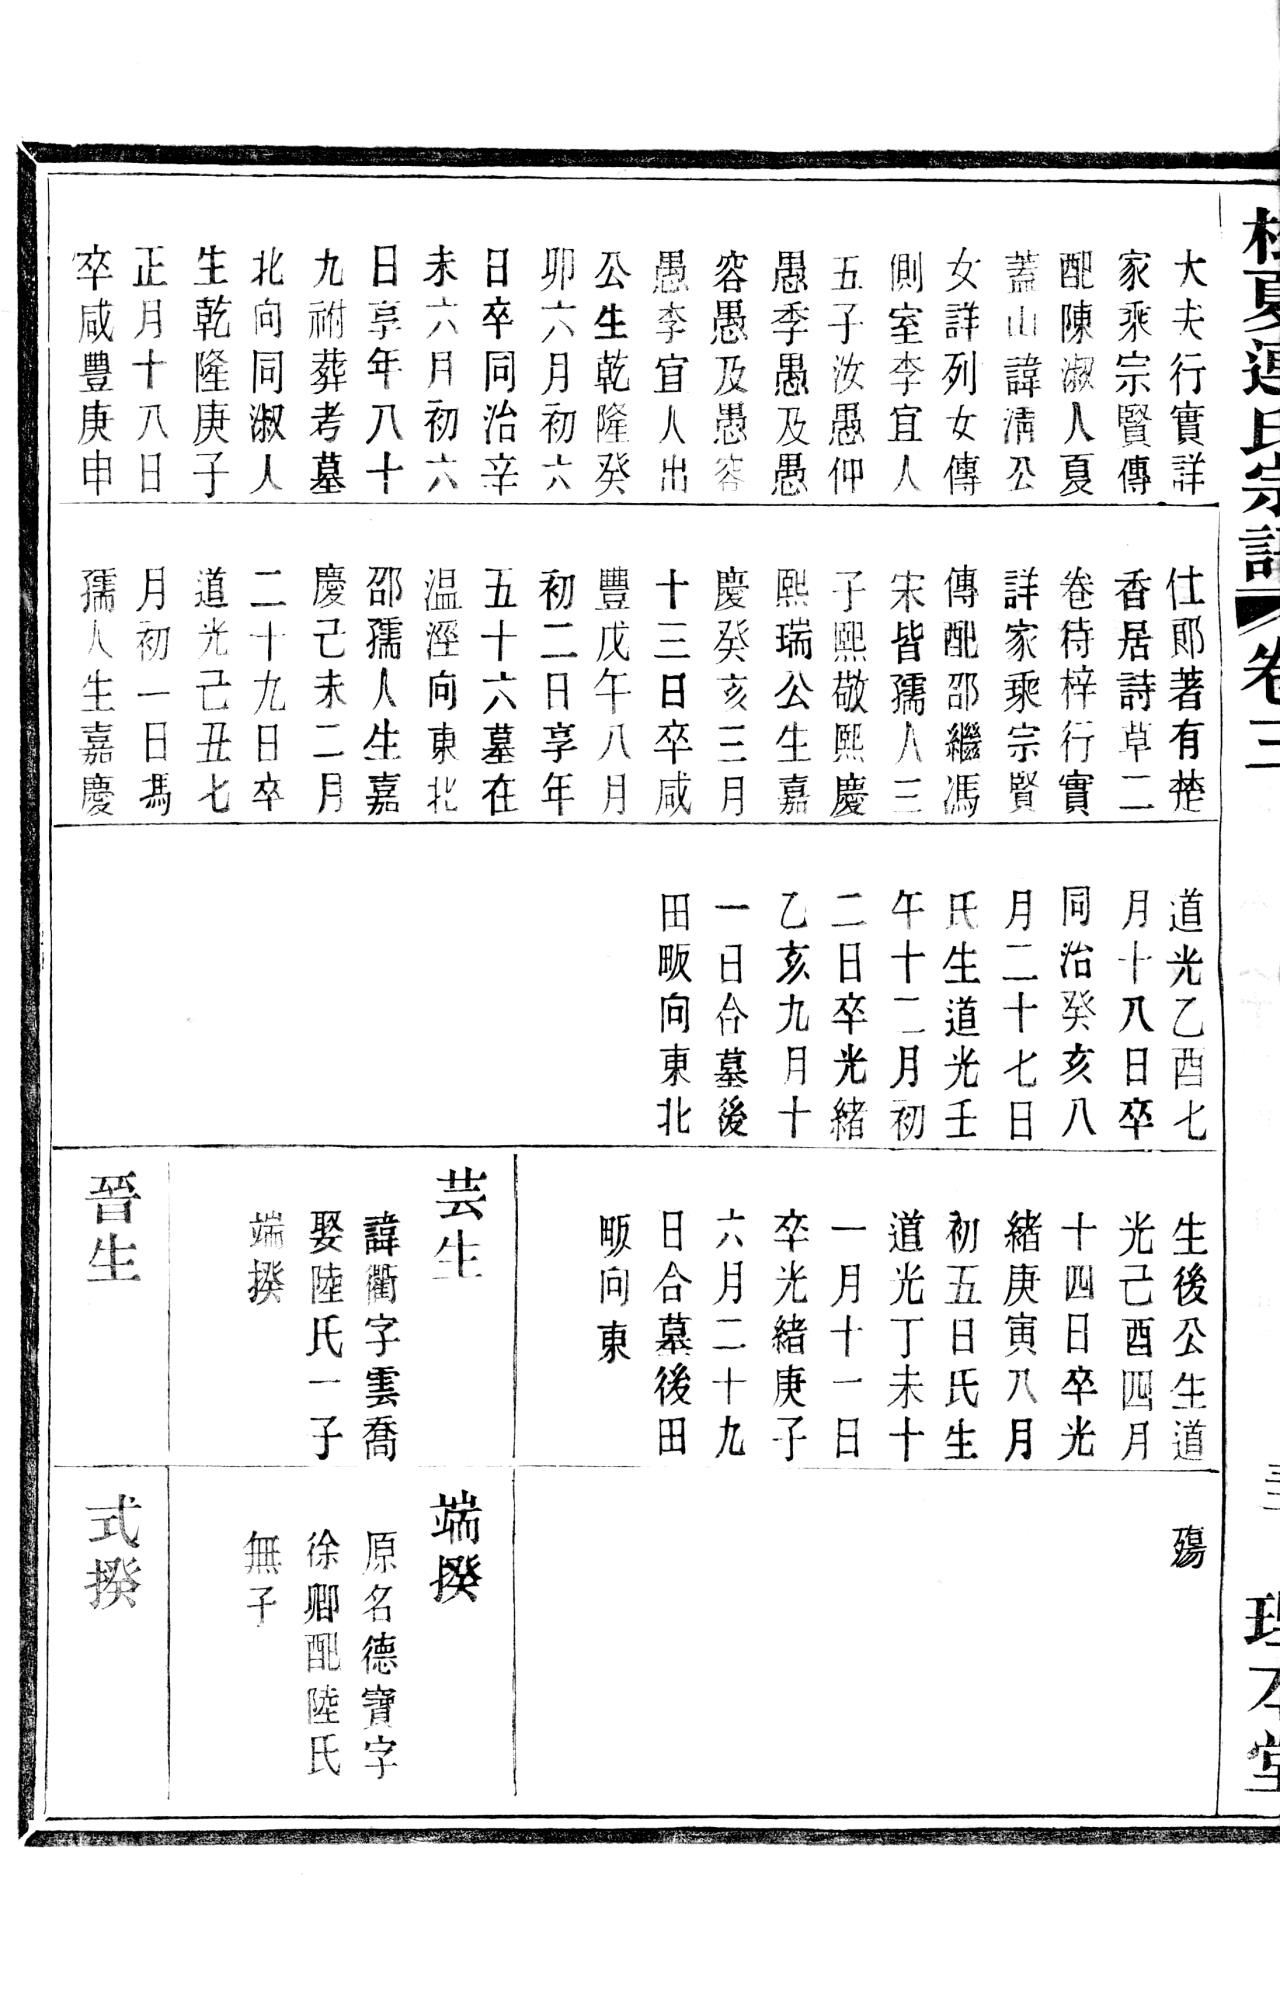 夏連氏宗譜 卷三
理本堂
大夫行實詳
家乘宗賢傳
配陳淑人夏
蓋山諱淸公
女詳列女傳
側室李宜人
五子汝愚仲
愚季愚及愚
容愚及愚容
愚李宜人出
公生乾隆癸
卯六月初六
日卒同治辛
未六月初六
日享年八十
九祔葬考墓
北向同淑人
生乾隆庚子
正月十八日
卒咸豐庚申
仕郎著有楚
香居詩草二
卷待梓行實
詳家乘宗賢
傳配邵繼馮
宋皆孺人三
子熙敬熙慶
熙瑞公生嘉
慶癸亥三月
十三日卒咸
豐戊午八月
初二日享年
五十六墓在
温涇向東北
邵孺人生嘉
慶己未二月
二十九日卒
道光己丑七
月初一日馮
孺人生嘉慶
道光乙酉七
月十八日卒
同治癸亥八
月二十七日
氏生道光壬
午十二月初
二日卒光緒
乙亥九月十
一日合墓後
田畈向東北
生後公生道
光己酉四月
十四日卒光
緒庚寅八月
初五日氏生
道光丁未十
一月十一日
卒光緒庚子
六月二十九
日合墓後田
畈向東
芸生
諱衢字雲喬
娶陸氏一子
端揆
晉生
殤
端揆
原名德寶字
徐卿配陸氏
無子
式揆